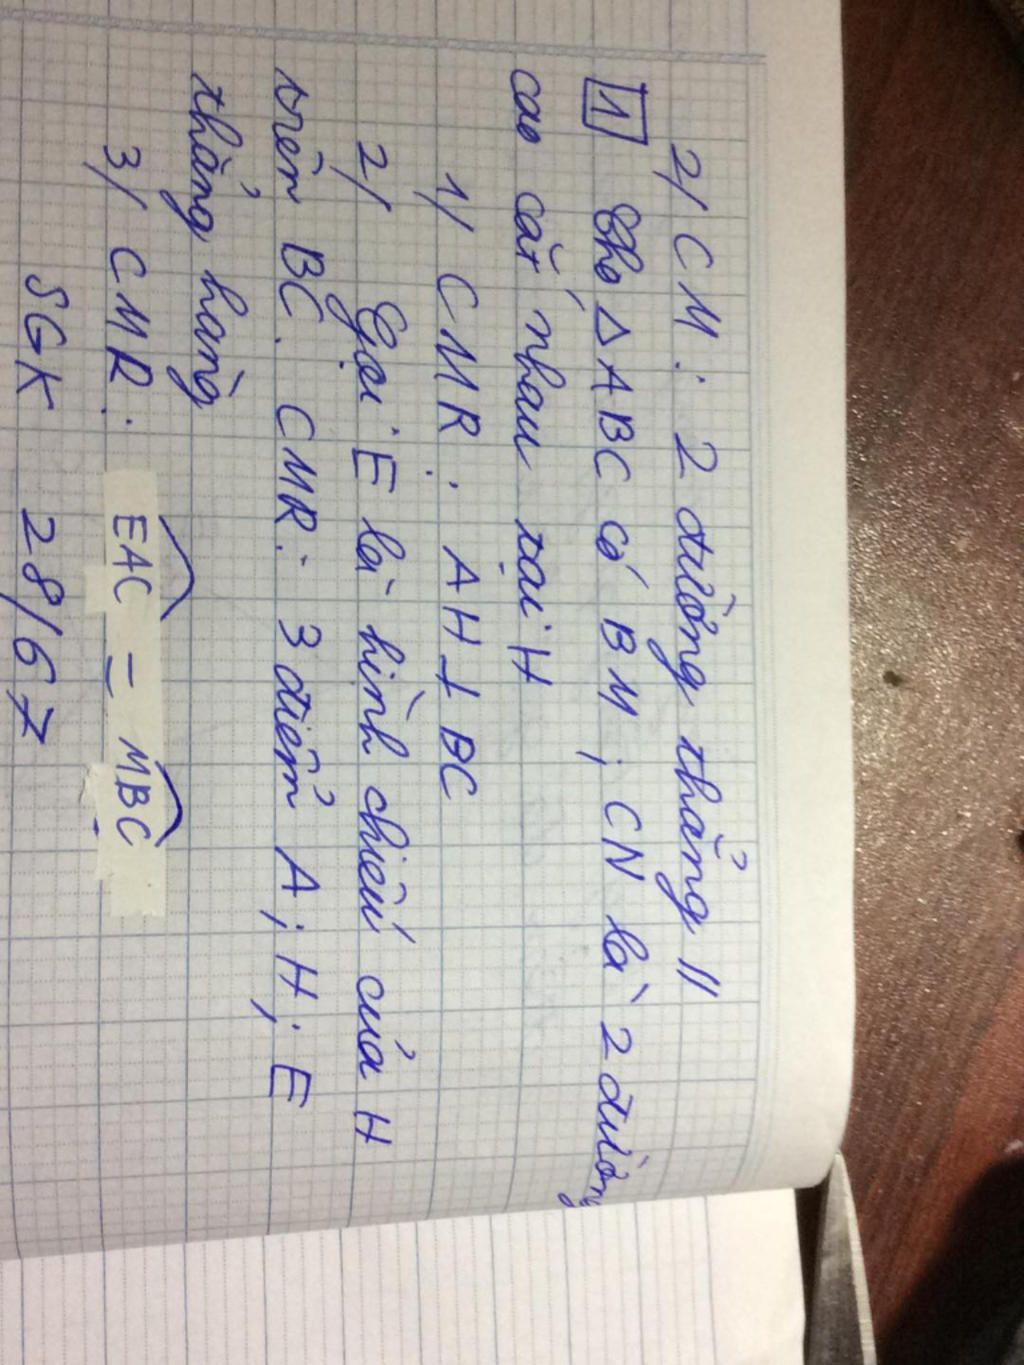 2/ CM: 2 đường thẳng //
1 Cho △ABC có BM; CN là 2 đường
cao cắt nhau tại H
1/ CMR: AH ⊥ BC
2/ Gọi E là hình chiếu của H
trên BC. CMR: 3 điểm A; H; E
thẳng hàng
3/ CMR: \widehat{EAC} = \widehat{MBC}
SGK 28/67